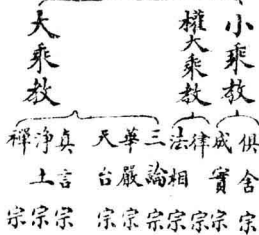 小乘教
權大乘教
大乘教
俱舍宗
成實宗
律宗
法相宗
三論宗
華嚴宗
天台宗
真言宗
淨土宗
禪宗